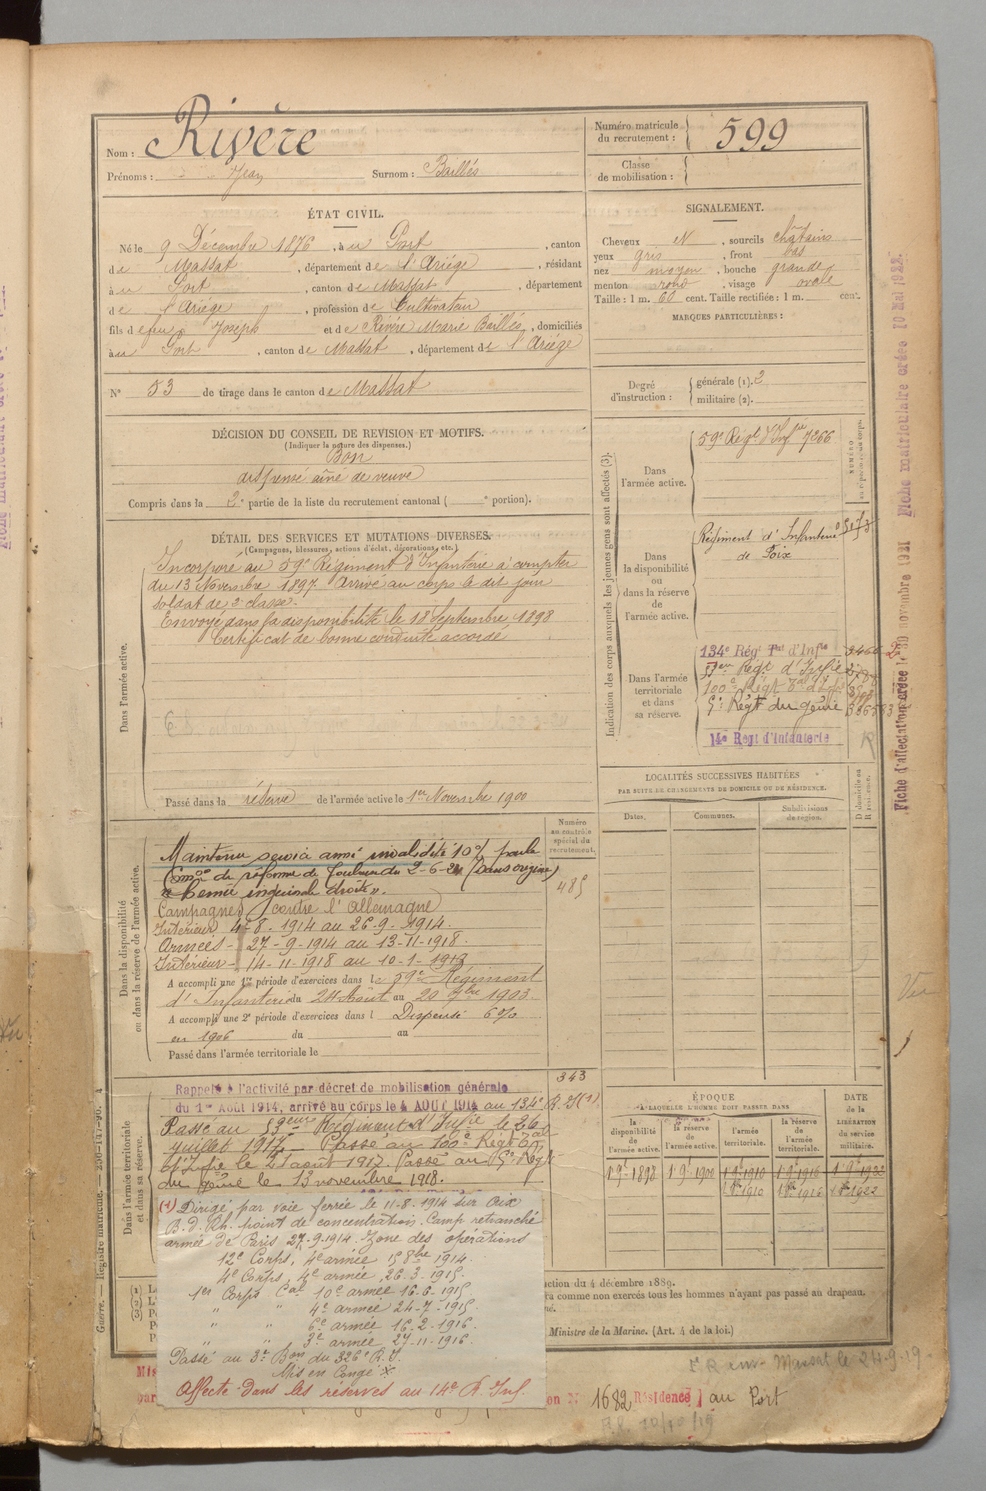 Nom : Rivère
Prénoms : Jean Surnom : Baillés
Numéro matricule
du recrutement : 599
Classe
de mobilisation :
ÉTAT CIVIL.
Né le 9 Décembre 1876, à u Port, canton
de Massat, département de l'Ariège, résidant
à u Port, canton de Massat, département
de l'Ariège, profession de Cultivateur
fils d e feu Joseph et de Rivère Marie Baillés, domiciliés
à u Port, canton de Massat, département de l'Ariège
N° 53 de tirage dans le canton de Massat
SIGNALEMENT.
Cheveux N, sourcils châtains
yeux gris, front bas
nez moyen, bouche grande
menton rond, visage ovale
Taille : 1 m. 60 cent. Taille rectifiée : 1 m. cent.
MARQUES PARTICULIÈRES :
Degré
d'instruction :
générale (1). 2
militaire (2).
DÉCISION DU CONSEIL DE REVISION ET MOTIFS.
(Indiquer la nature des dispenses.)
Bon
dispensé aîné de veuve
Compris dans la 2e partie de la liste du recrutement cantonal ( e portion).
DÉTAIL DES SERVICES ET MUTATIONS DIVERSES.
(Campagnes, blessures, actions d'éclat, décorations, etc.)
Dans l'armée active.
Incorporé au 59e Régiment d'Infanterie à compter
du 13 Novembre 1897. Arrivé au corps le dit jour
soldat de 2e classe.
Envoyé dans la disponibilité le 18 Septembre 1898
Certificat de bonne conduite accordé
Passé dans la réserve de l'armée active le 1er Novembre 1900
Indication des corps auxquels les jeunes gens sont affectés (3).
Dans
l'armée active.
59e Régt d'Infie 7266
Dans
la disponibilité
ou
dans la réserve
de
l'armée active.
Régiment d'Infanterie
de Foix
Dans l'armée
territoriale
et dans
sa réserve.
134e Rég Tal d'Infie
Régt d'Infie
100e Régt Tal d'Infie
5e Régt du génie
14e Regt d'Infanterie
LOCALITÉS SUCCESSIVES HABITÉES
PAR SUITE DE CHANGEMENTS DE DOMICILE OU DE RÉSIDENCE.
Dates.
Communes.
Subdivisions
de région.
D domicile ou
R résidence.
Dans la disponibilité
ou dans la réserve de l'armée active.
Numéro
au contrôle
spécial du
recrutement.
485
Maintenu service armé invalidité 10% par la
Comon de réforme de Toulouse du 2-6-21 (Sans origine)
"Hernie inguinale droite".
Campagnes contre l'Allemagne
Intérieur 4-8-1914 au 26-9-1914.
Armées - 27-9-1914 au 13-11-1918.
Intérieur - 14-11-1918 au 10-1-1919
A accompli une 1re période d'exercices dans le 59e Régiment
d'Infanterie du 24 Août au 20 7bre 1903.
A accompli une 2e période d'exercices dans l Dispensé 6%
en 1906 du au
Passé dans l'armée territoriale le
Dans l'armée territoriale
et dans sa réserve.
343
Rappelé à l'activité par décret de mobilisation générale
du 1er Août 1914, arrivé au corps le 4 AOUT 1914 au 134e R.I. (1)
Passé au Régiment d'Infie le 26
juillet 1917. Passé au 100e Régt Tal
d'Infie le 21 août 1917. Passé au 5e Régt
du génie le 13 novembre 1918.
(1) Dirigé par voie ferrée le 11-8-1914 sur Aix
B. d. Rh. point de concentration. Camp retranché
armée de Paris 27-9-1914. Zone des opérations
12e Corps, 4e armée 15 8bre 1914.
4e Corps, 4e armée, 26.3.1915.
1er Corps Cal 10e armée 16-6-1915
" " 4e armée 24-7-1915.
" " 6e armée 16.2.1916.
" " 3e armée 27-11-1916.
Passé au 3e Bon du 326e R.I.
Mis en Congé
Affecté dans les réserves au 14e R. Inf.
ÉPOQUE
À LAQUELLE L'HOMME DOIT PASSER DANS
la
disponibilité
de
l'armée active.
la réserve
de
l'armée active.
l'armée
territoriale.
la réserve
de
l'armée
territoriale.
DATE
de la
LIBÉRATION
du service
militaire.
1 9e 1898 1 9e 1900 1 9e 1910 1 9e 1916 1 9e 1922
1910 1916 1922
ction du 4 décembre 1889.
comme non exercés tous les hommes n'ayant pas passé au drapeau.
Ministre de la Marine. (Art. 4 de la loi.)
on N° 1682 Résidence au Port
Massat le 24-9-19
Guerre. — Registre matricule.
Fiche d'affectation créée le 30 novembre 1921
Fiche matriculaire créée 10 Mai 1922
Vu